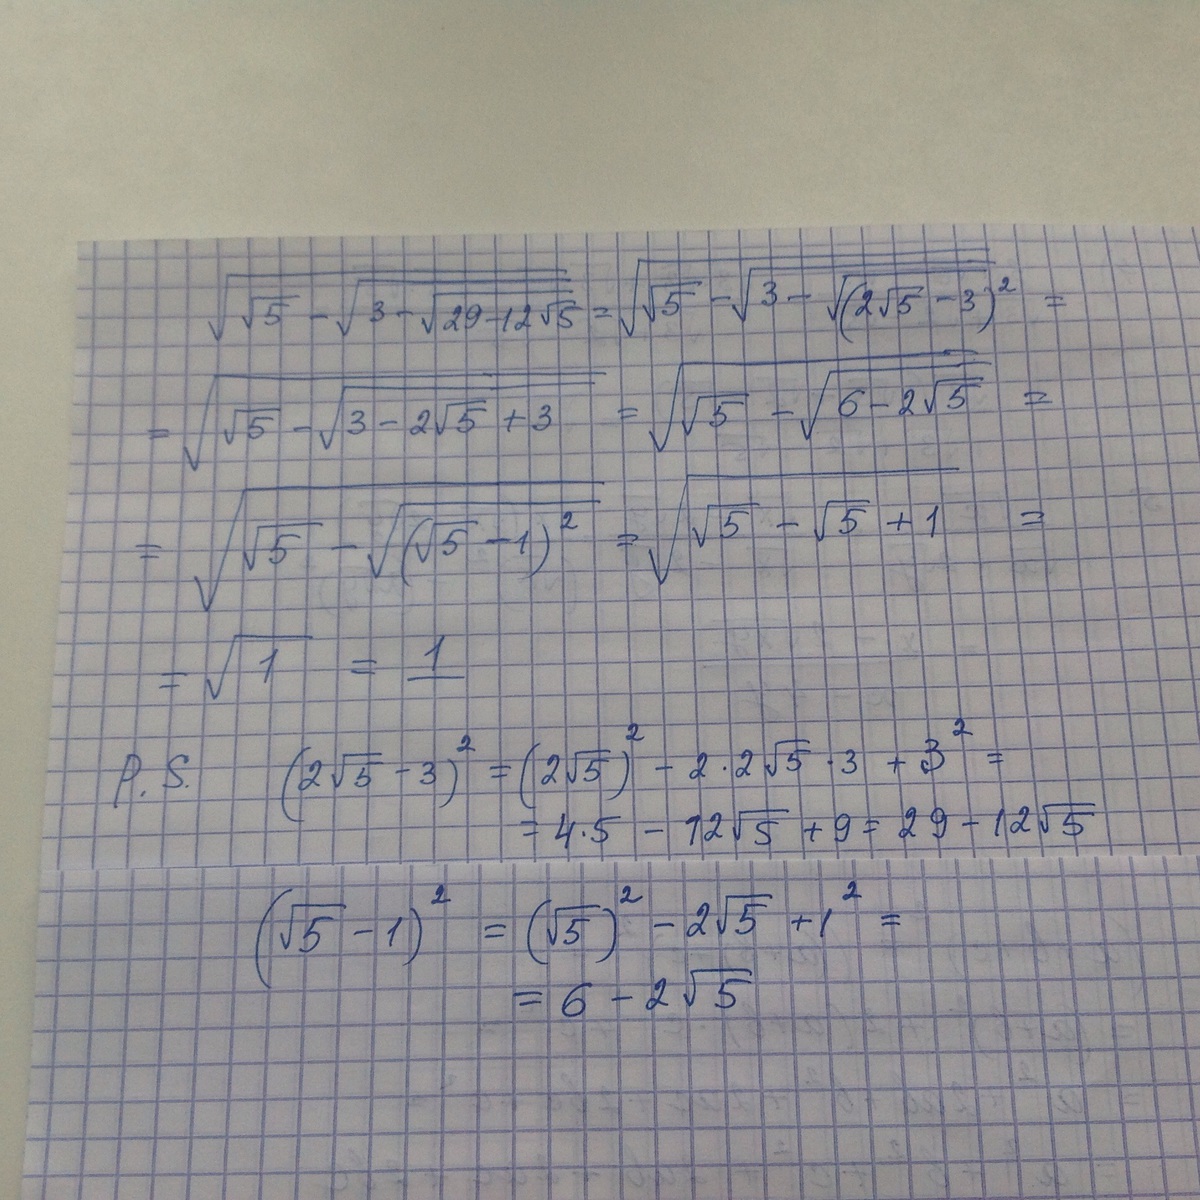 √(√5 - √(3 - √(29 - 12√5))) = √(√5 - √(3 - √((2√5 - 3)²))) =
= √(√5 - √(3 - 2√5 + 3)) = √(√5 - √(6 - 2√5)) =
= √(√5 - √((√5 - 1)²)) = √(√5 - √5 + 1) =
= √1 = 1
P.S. (2√5 - 3)² = (2√5)² - 2·2√5·3 + 3² =
= 4·5 - 12√5 + 9 = 29 - 12√5
(√5 - 1)² = (√5)² - 2√5 + 1² =
= 6 - 2√5